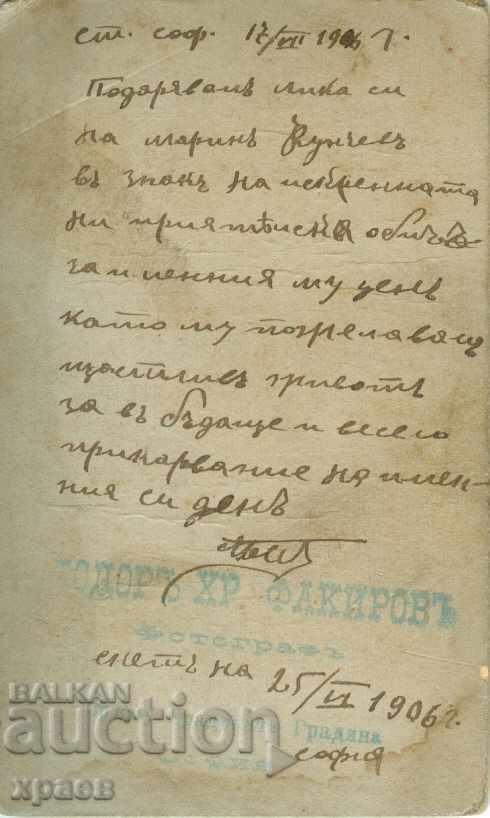 ст. соф. 17/VII 1906 г.
Подарявамъ лика си
на Маринъ Кунчевъ
въ знакъ на искренната
ни приятѣлска обичь
за имения му день
като му пожелавашъ
щастливъ животъ
за въ бѫдаще и весело
прикарвание на имен-
ния си день
ТОДОРЪ ХР ФАКИРОВЪ
Фотографъ
снетъ на 25/VI 1906 г.
Градина
СОФИЯ
София
BALKAN
auction
храев